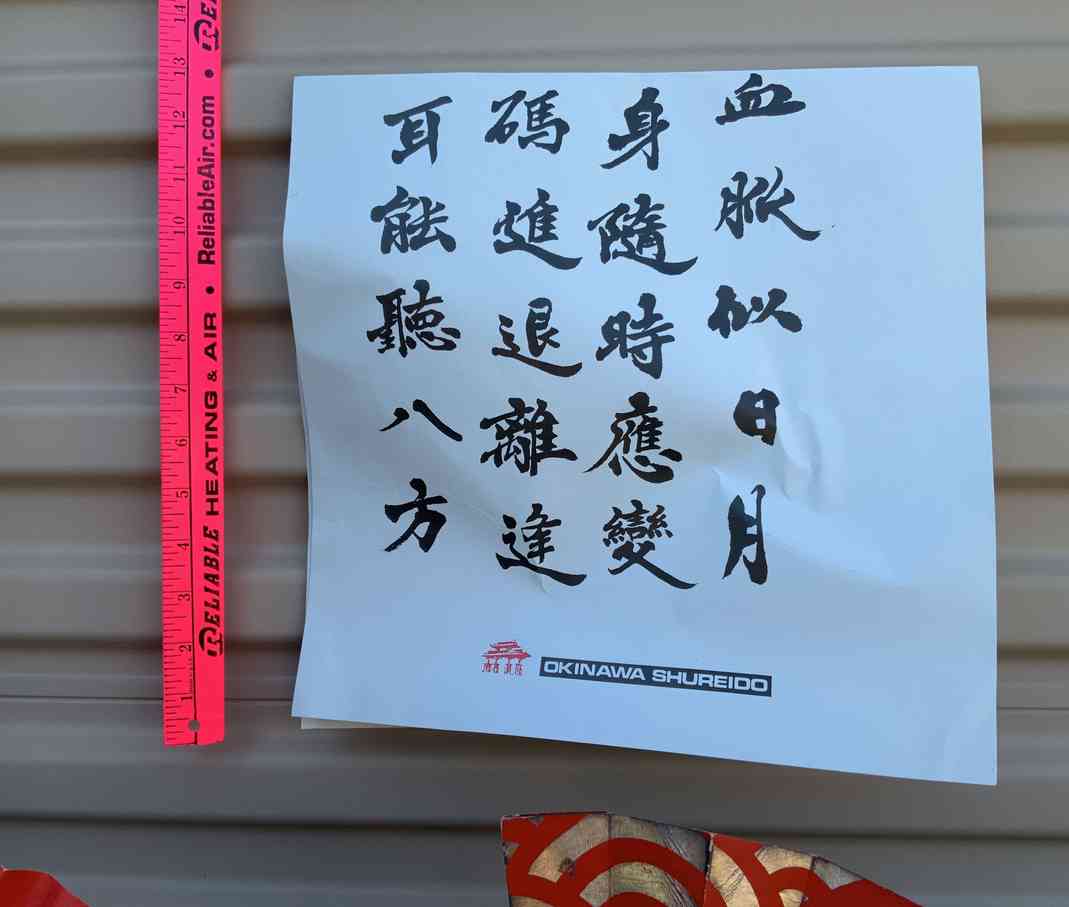 血脈似日月
身隨時應變
碼進退離逢
耳能聽八方
OKINAWA SHUREIDO
RELIABLE HEATING & AIR • ReliableAir.com •
1 2 3 4 5 6 7 8 9 10 11 12 13 14